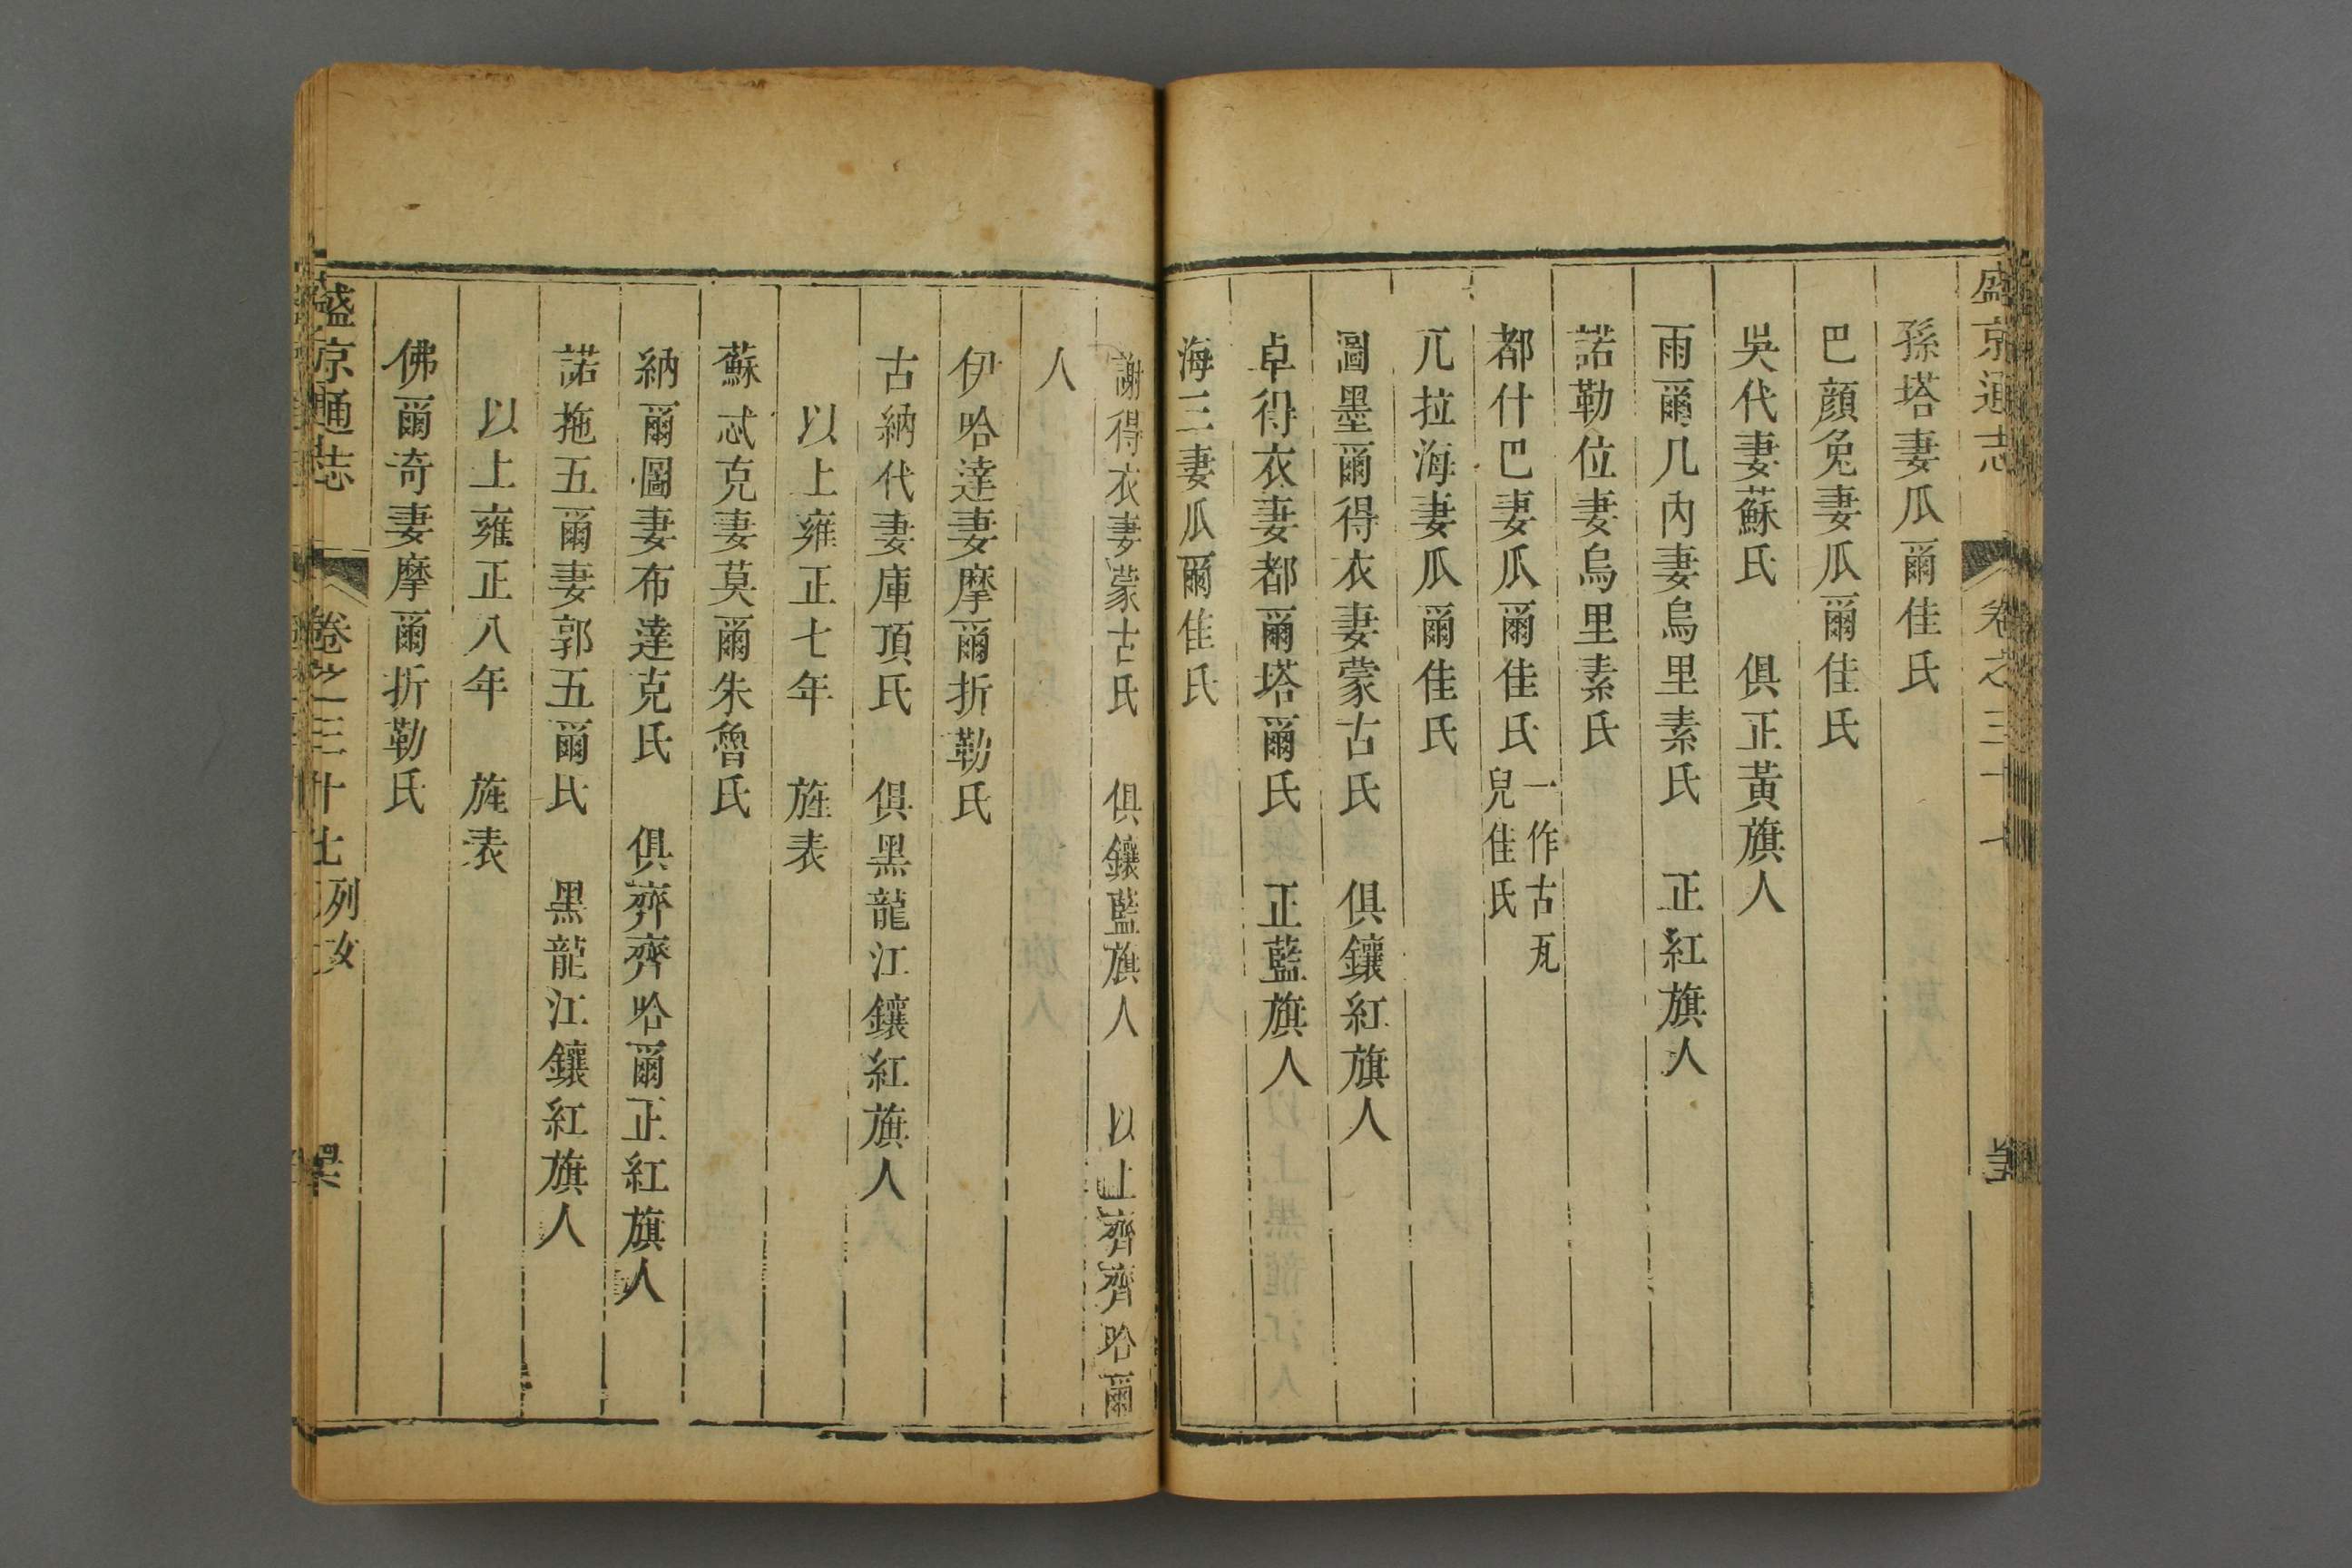 盛京通志 卷之三十七
孫塔妻瓜爾佳氏
巴顔兔妻瓜爾佳氏
吳代妻蘇氏 俱正黃旗人
雨爾几內妻烏里素氏 正紅旗人
諾勒位妻烏里素氏
都什巴妻瓜爾佳氏一作古瓦兒佳氏
兀拉海妻瓜爾佳氏
圖墨爾得衣妻蒙古氏 俱鑲紅旗人
卓得衣妻都爾塔爾氏 正藍旗人
海三妻瓜爾佳氏
謝得衣妻蒙古氏 俱鑲藍旗人 以上齊齊哈爾
人
伊哈達妻摩爾折勒氏
古納代妻庫頂氏 俱黑龍江鑲紅旗人
以上雍正七年 旌表
蘇忒克妻莫爾朱魯氏
納爾圖妻布達克氏 俱齊齊哈爾正紅旗人
諾拖五爾妻郭五爾氏 黑龍江鑲紅旗人
以上雍正八年 旌表
佛爾奇妻摩爾折勒氏
盛京通志 卷之三十七 列女